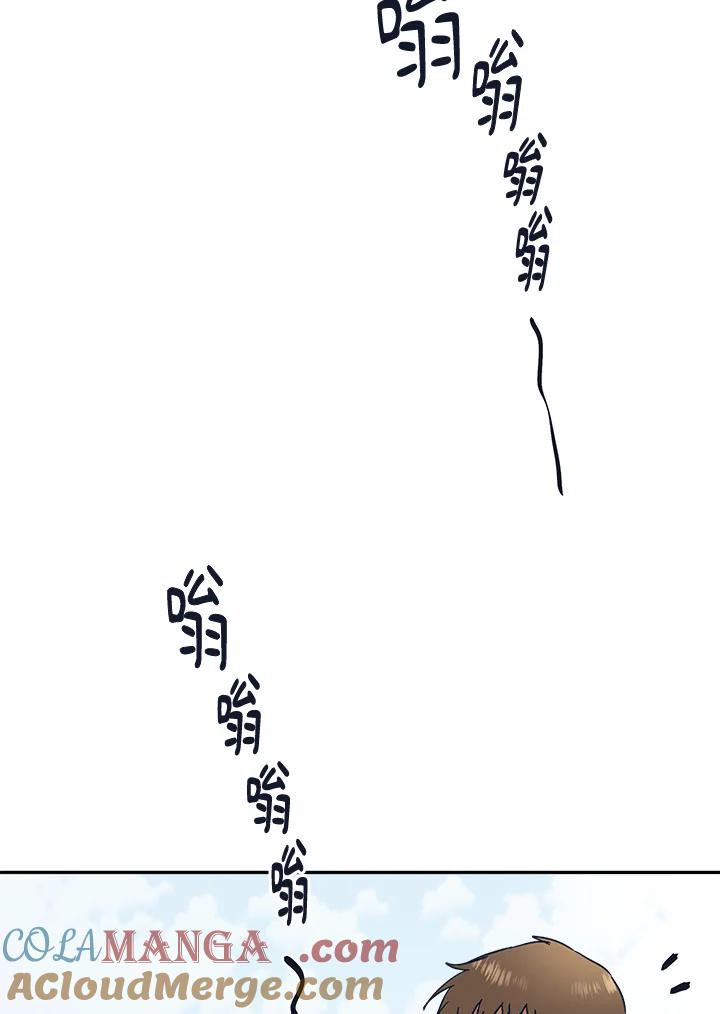 嗡
嗡
嗡
嗡
嗡
嗡
嗡
嗡
COLAMANGA.com
AcloudMerge.com